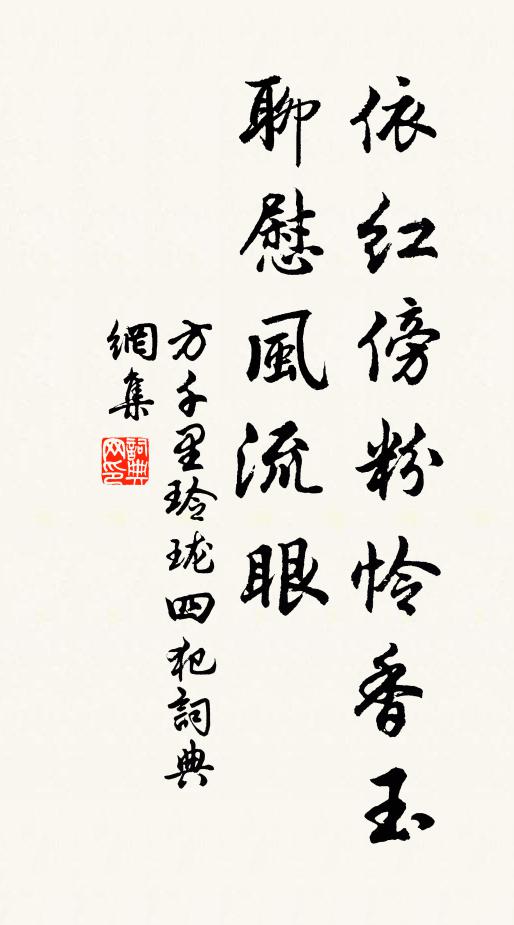 依紅傍粉怜香玉
聊慰風流眼
方千里玲瓏四犯詞典
網集
詞典网印